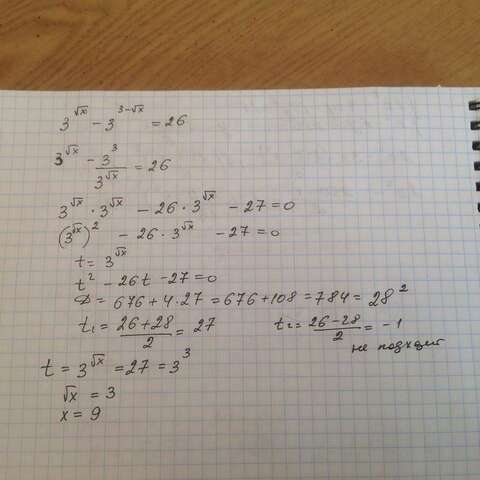 3^√x − 3^(3−√x) = 26
3^√x − 3^3/3^√x = 26
3^√x · 3^√x − 26 · 3^√x − 27 = 0
(3^√x)^2 − 26 · 3^√x − 27 = 0
t = 3^√x
t^2 − 26t − 27 = 0
D = 676 + 4 · 27 = 676 + 108 = 784 = 28^2
t₁ = (26 + 28)/2 = 27 t₂ = (26 − 28)/2 = −1
не подходит
t = 3^√x = 27 = 3^3
√x = 3
x = 9